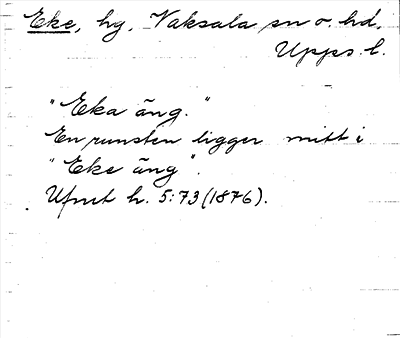 Eke, hg, Vaksala sn o. hd,
Upps. l.
"Eka äng."
En runsten ligger mitt i
"Eke äng".
Ufmt h. 5:73 (1876).